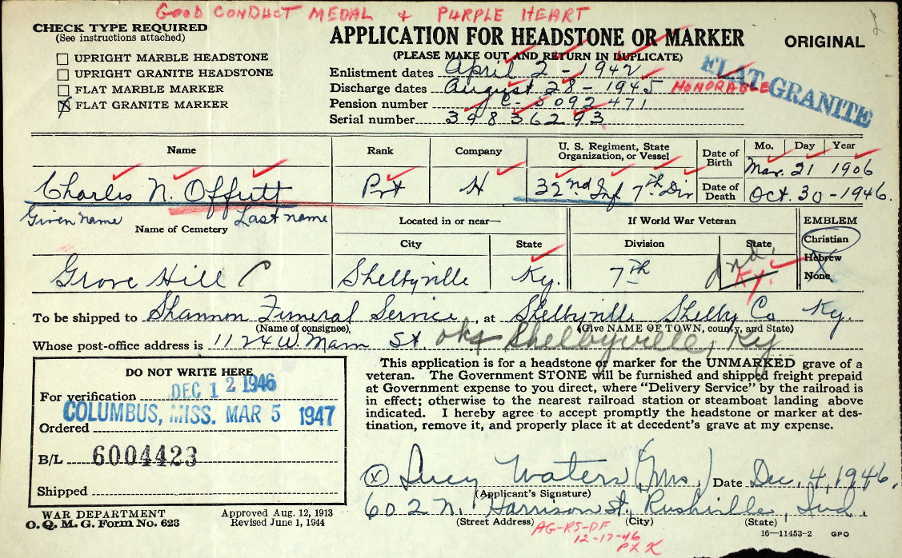 GOOD CONDUCT MEDAL & PURPLE HEART
CHECK TYPE REQUIRED
(See instructions attached)
UPRIGHT MARBLE HEADSTONE
UPRIGHT GRANITE HEADSTONE
FLAT MARBLE MARKER
FLAT GRANITE MARKER
APPLICATION FOR HEADSTONE OR MARKER
(PLEASE MAKE OUT AND RETURN IN DUPLICATE)
ORIGINAL
Enlistment dates April 2 - 1942
Discharge dates August 28 - 1945 HONORABLE
Pension number C-5092471
Serial number 39836293
FLAT GRANITE
Name
Rank
Company
U. S. Regiment, State Organization, or Vessel
Date of Birth
Mo. Day Year
Charles N. Offutt
Pvt
H
32nd Inf 7th Div
Mar. 21 1906
Date of Death
Oct. 30 - 1946.
Given name Last name
Name of Cemetery
Located in or near—
City
State
If World War Veteran
Division
State
EMBLEM
Christian
Hebrew
None
Grove Hill
Shelbyville
Ky.
7th
Ind.
Ky.
To be shipped to Shannon Funeral Service at Shelbyville Shelby Co Ky.
(Name of consignee)
(Give NAME OF TOWN, county, and State)
Whose post-office address is 1124 W. Main St. Shelbyville, Ky
DO NOT WRITE HERE
For verification DEC 12 1946
COLUMBUS, MISS. MAR 5 1947
Ordered
B/L 6004423
Shipped
This application is for a headstone or marker for the UNMARKED grave of a
veteran. The Government STONE will be furnished and shipped freight prepaid
at Government expense to you direct, where "Delivery Service" by the railroad is
in effect; otherwise to the nearest railroad station or steamboat landing above
indicated. I hereby agree to accept promptly the headstone or marker at des-
tination, remove it, and properly place it at decedent's grave at my expense.
Lucy Waters (Mrs.) Date Dec. 4, 1946.
(Applicant's Signature)
602 N. Harrison St, Rushville, Ind.
(Street Address) (City) (State)
WAR DEPARTMENT
O. Q. M. G. Form No. 623
Approved Aug. 12, 1913
Revised June 1, 1944
AG-RS-DF
12-17-46
16—11453-2 GPO